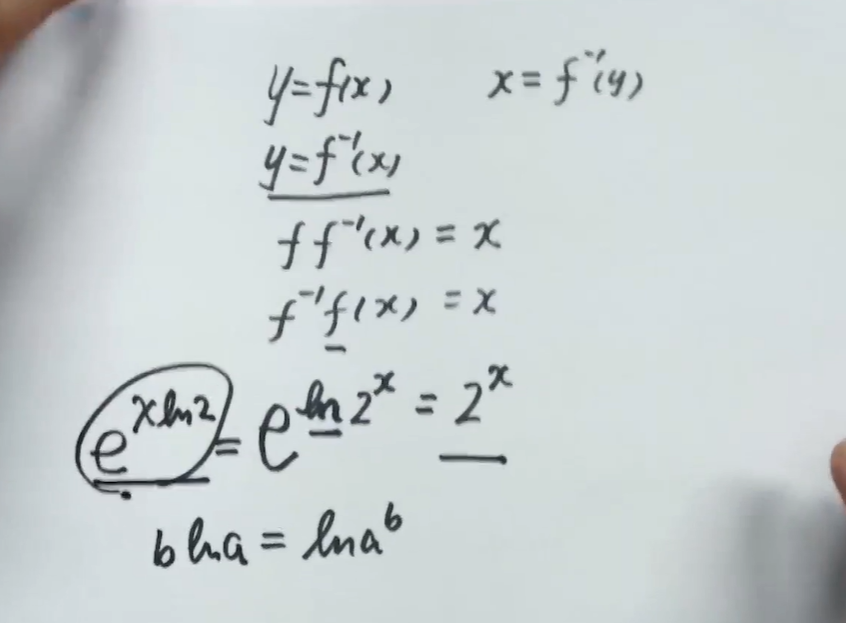 y=f(x) x=f⁻¹(y)
y=f⁻¹(x)
ff⁻¹(x)=x
f⁻¹f(x)=x
e^{xln2}=e^{ln2^x}=2^x
blna=lna^b